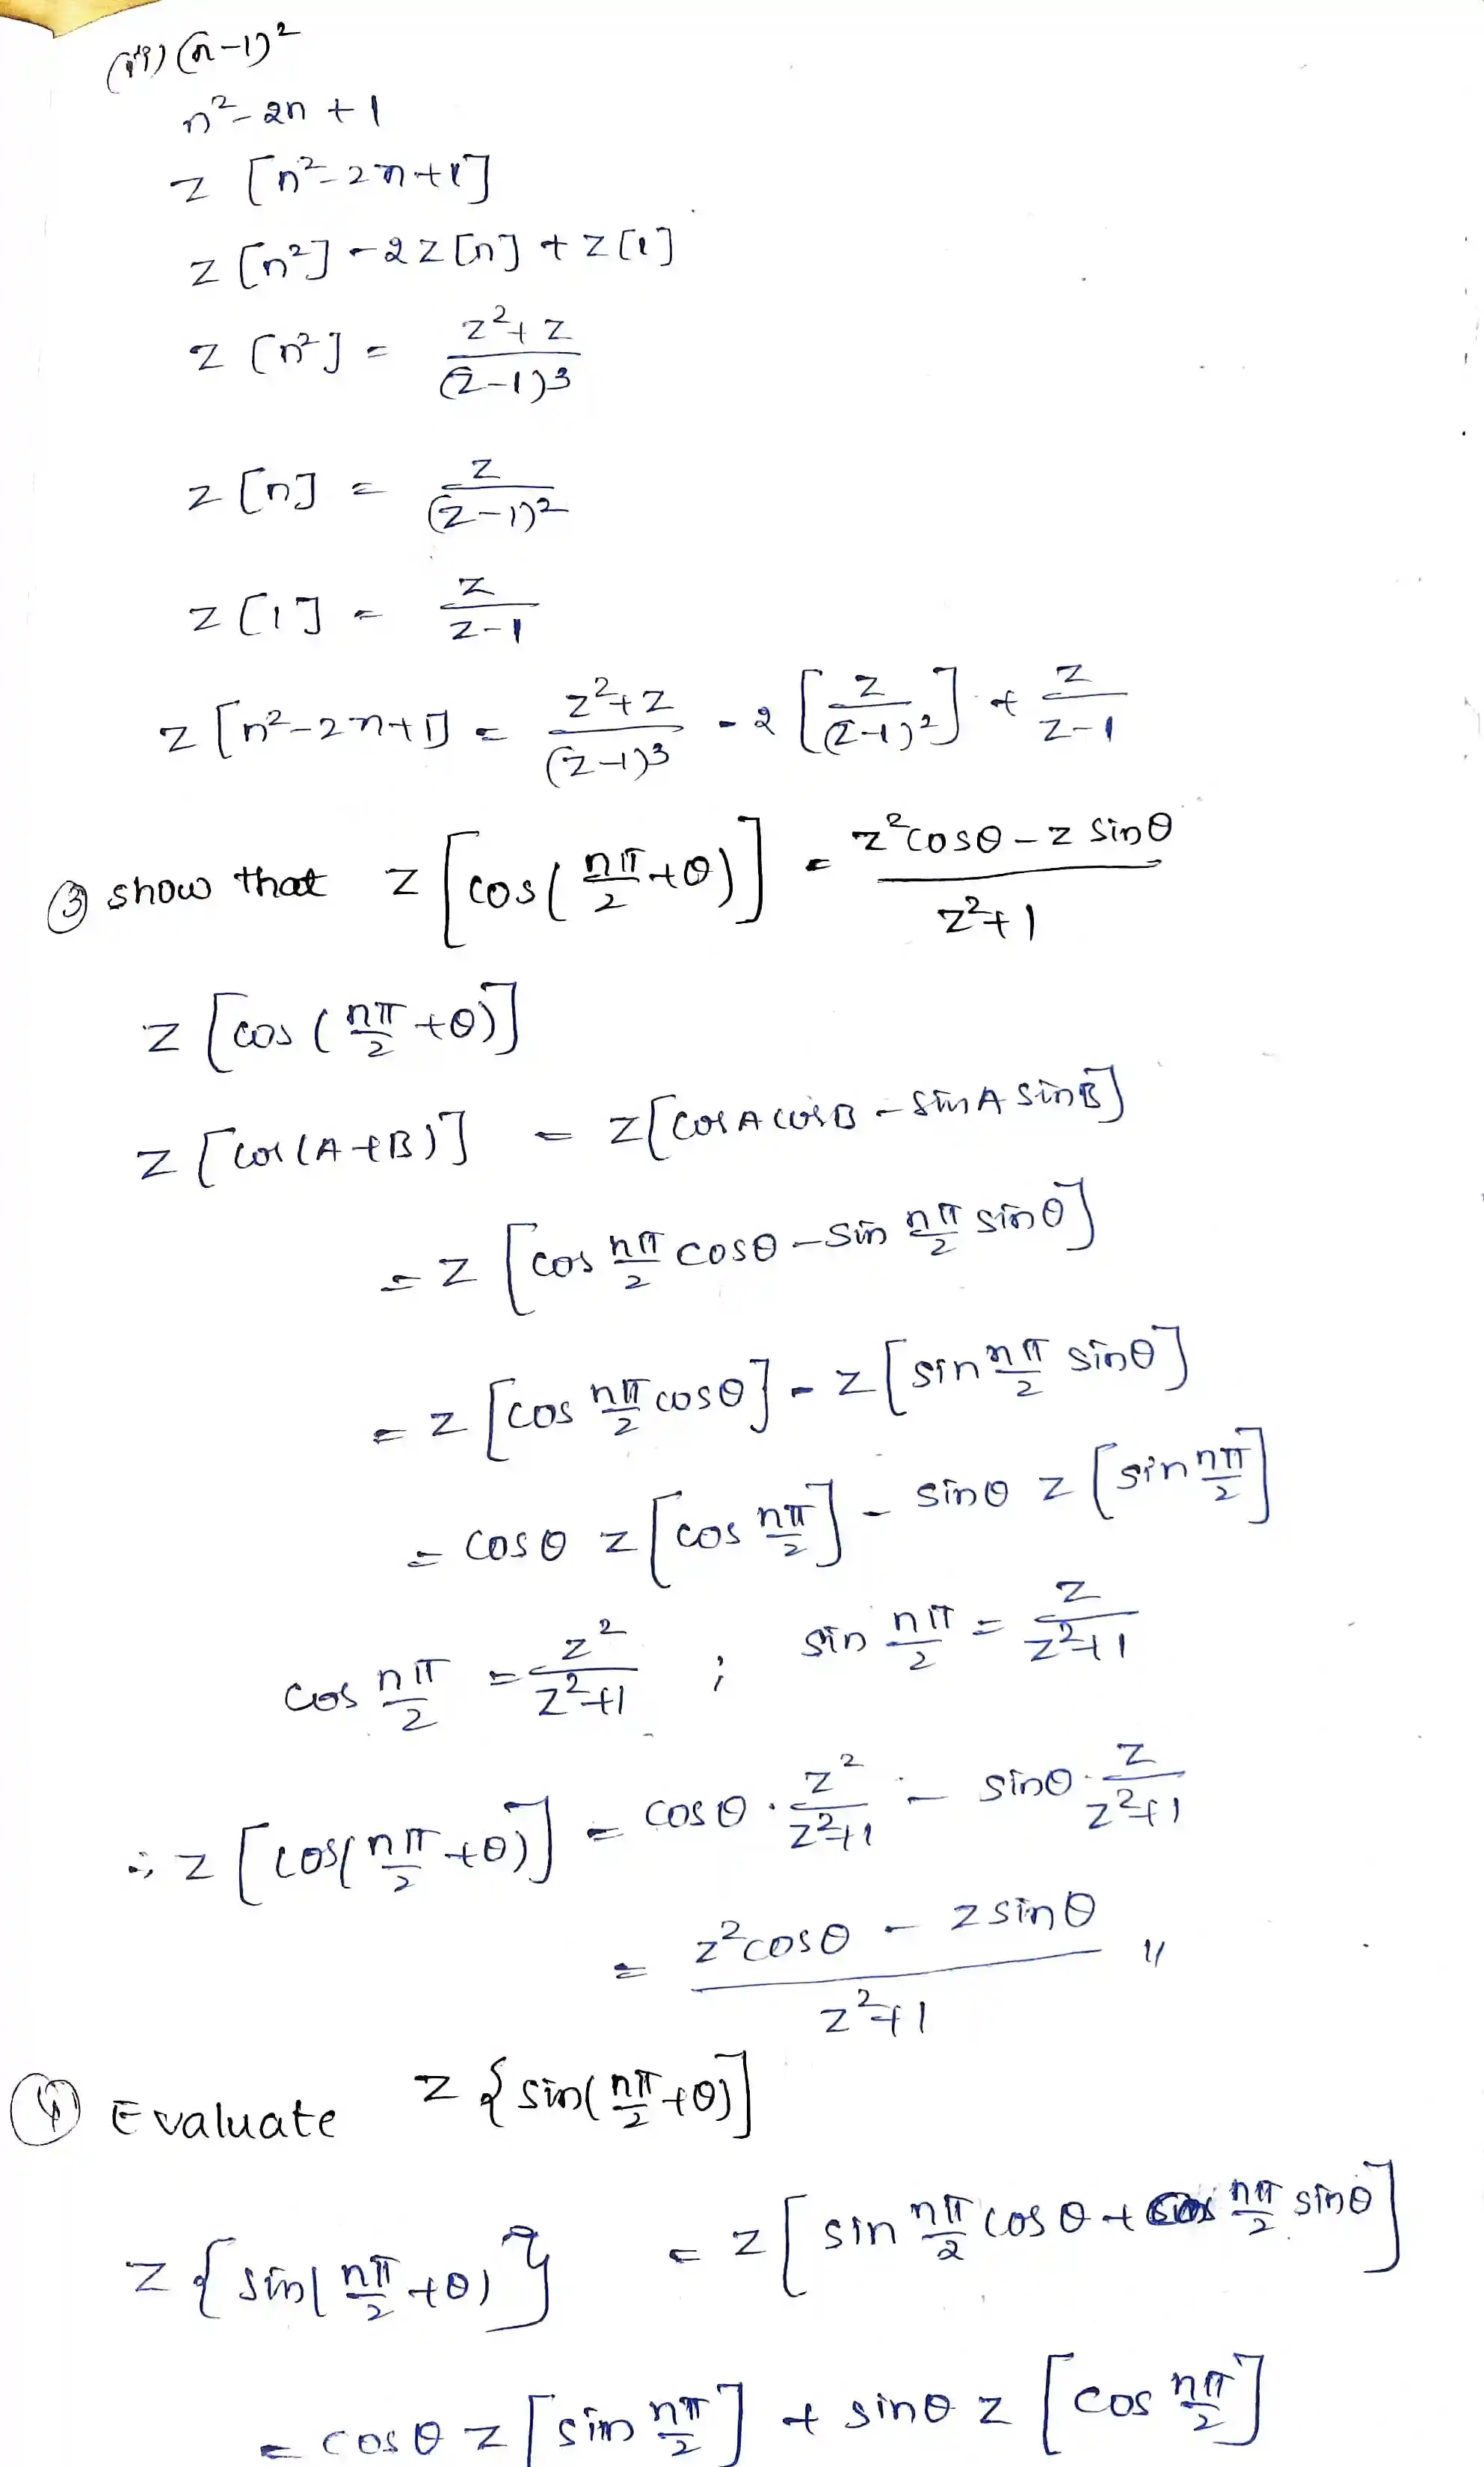 (iii) (n-1)²
n²-2n+1
z [n²-2n+1]
z [n²] - 2z[n] + z[1]
z [n²] = z²+z / (z-1)³
z [n] = z / (z-1)²
z [1] = z / z-1
z [n²-2n+1] = z²+z / (z-1)³ - 2 [z / (z-1)²] + z / z-1
③ show that z [cos(nπ/2 +θ)] = z²cosθ - z sinθ / z²+1
z [cos (nπ/2 +θ)]
z [cos(A+B)] = z[cosA cosB - sinA sinB]
= z [cos nπ/2 cosθ - sin nπ/2 sinθ]
= z [cos nπ/2 cosθ] - z [sin nπ/2 sinθ]
= cosθ z [cos nπ/2] - sinθ z [sin nπ/2]
cos nπ/2 = z² / z²+1 ; sin nπ/2 = z / z²+1
∴ z [cos(nπ/2 +θ)] = cosθ . z² / z²+1 - sinθ . z / z²+1
= z²cosθ - z sinθ / z²+1 //
④ Evaluate z {sin(nπ/2 +θ)]
z {sin(nπ/2 +θ)} = z [sin nπ/2 cosθ + cos nπ/2 sinθ]
= cosθ z [sin nπ/2] + sinθ z [cos nπ/2]